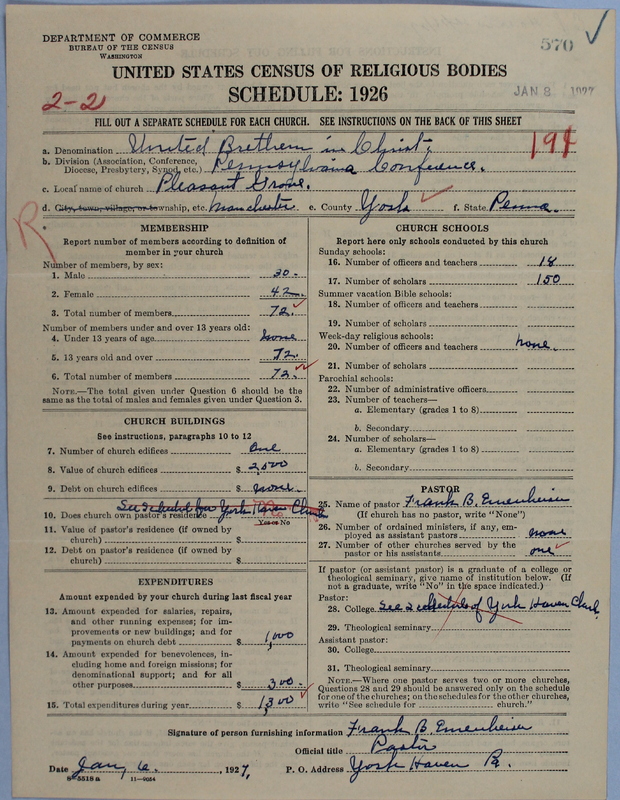 DEPARTMENT OF COMMERCE
BUREAU OF THE CENSUS
WASHINGTON
570
UNITED STATES CENSUS OF RELIGIOUS BODIES
SCHEDULE: 1926
2-2
JAN 8 1927
FILL OUT A SEPARATE SCHEDULE FOR EACH CHURCH. SEE INSTRUCTIONS ON THE BACK OF THIS SHEET
194
a. Denomination United Brethern in Christ.
b. Division (Association, Conference, Diocese, Presbytery, Synod, etc.) Pennsylvania Conference.
c. Local name of church Pleasant Grove.
d. City, town, village, or township, etc. Manchester e. County York f. State Penna.
R
MEMBERSHIP
Report number of members according to definition of
member in your church
Number of members, by sex:
1. Male 30.
2. Female 42.
3. Total number of members. 72.
Number of members under and over 13 years old:
4. Under 13 years of age None
5. 13 years old and over 72.
6. Total number of members 72.
NOTE.—The total given under Question 6 should be the
same as the total of males and females given under Question 3.
CHURCH BUILDINGS
See instructions, paragraphs 10 to 12
7. Number of church edifices One
8. Value of church edifices $ 2,500
9. Debt on church edifices $ None.
See schedule for York Haven Church
10. Does church own pastor's residence
Yes or No
11. Value of pastor's residence (if owned by
church) $
12. Debt on pastor's residence (if owned by
church) $
EXPENDITURES
Amount expended by your church during last fiscal year
13. Amount expended for salaries, repairs,
and other running expenses; for im-
provements or new buildings; and for
payments on church debt $ 1,000
14. Amount expended for benevolences, in-
cluding home and foreign missions; for
denominational support; and for all
other purposes $ 300
15. Total expenditures during year $ 1,300
CHURCH SCHOOLS
Report here only schools conducted by this church
Sunday schools:
16. Number of officers and teachers 18
17. Number of scholars 150
Summer vacation Bible schools:
18. Number of officers and teachers
19. Number of scholars
Week-day religious schools:
20. Number of officers and teachers none.
21. Number of scholars
Parochial schools:
22. Number of administrative officers
23. Number of teachers—
a. Elementary (grades 1 to 8)
b. Secondary
24. Number of scholars—
a. Elementary (grades 1 to 8)
b. Secondary
PASTOR
25. Name of pastor Frank B. Emenheiser
(If church has no pastor, write "None")
26. Number of ordained ministers, if any, em-
ployed as assistant pastors none
27. Number of other churches served by the
pastor or his assistants one
If pastor (or assistant pastor) is a graduate of a college or
theological seminary, give name of institution below. (If
not a graduate, write "No" in the space indicated.)
Pastor:
28. College See schedule of York Haven Church
29. Theological seminary
Assistant pastor:
30. College
31. Theological seminary
NOTE.—Where one pastor serves two or more churches,
Questions 28 and 29 should be answered only on the schedule
for one of the churches; on the schedules for the other churches,
write "See schedule for church."
Signature of person furnishing information Frank B. Emenheiser
Official title Pastor
Date Jan, 6., 1927, P. O. Address York Haven Pa.
8-5518a 11-9054